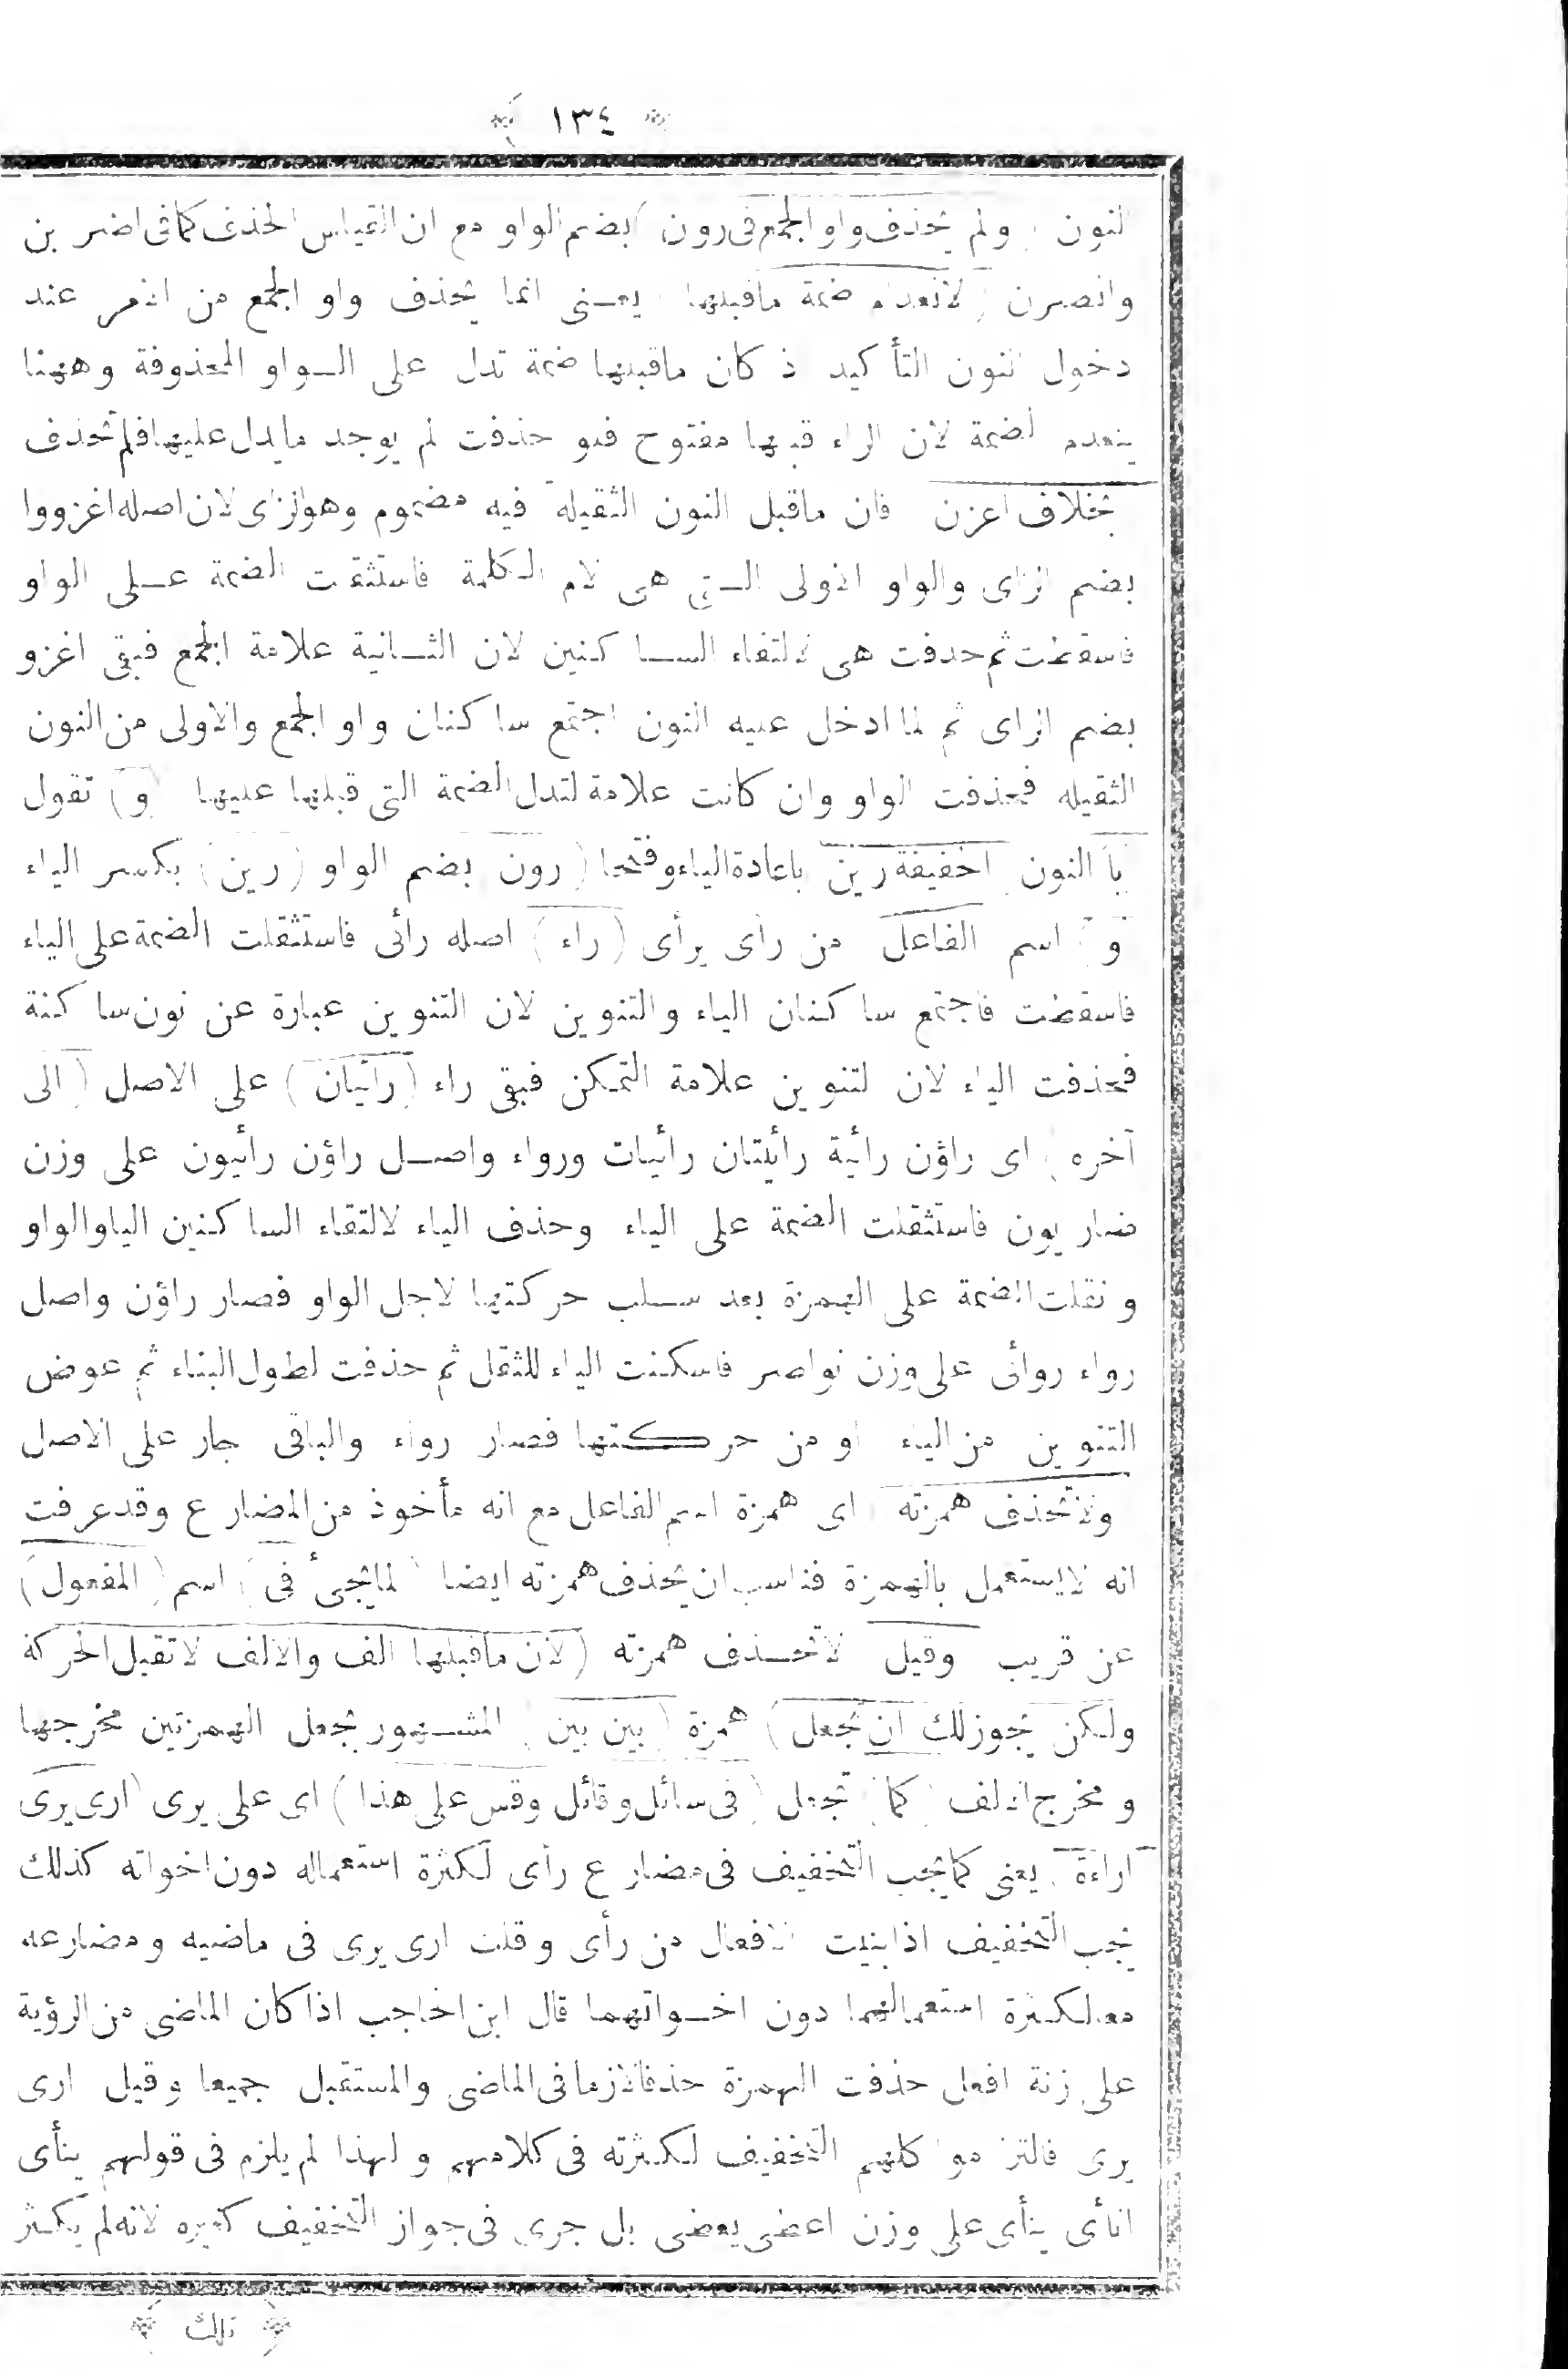 ١٣٤
النون (ولم يحذف واو الجمع فى رون) بضم الواو مع ان القياس الحذف كما فى اضربن
وانصرن (لانعدام ضمة ماقبلها) يعنى انما يحذف واو الجمع من الامر عند
دخول النون التأكيد اذ كان ماقبلها ضمة تدل على الواو المحذوفة وههنا
ينعدم الضمة لان الراء قبلها مفتوح فلو حذفت لم يوجد مايدل عليها فلم تحذف
بخلاف اغزن فان ماقبل النون الثقيلة فيه مضموم وهو الزاى لان اصله اغزووا
بضم الزاى والواو الاولى التى هى لام الكلمة فاستثقلت الضمة على الواو
فاسقطت ثم حذفت هى لالتقاء الساكنين لان الثانية علامة الجمع فبقى اغزو
بضم الزاى ثم لما ادخل عليه النون اجتمع ساكنان واو الجمع والاولى من النون
الثقيله فحذفت الواو وان كانت علامة لتدل الضمة التى قبلها عليها (و) تقول
(با) النون (الخفيفة رين) باعادة الياء وفتحها (رون) بضم الواو (رين) بكسر الياء
(و) اسم (الفاعل) من رأى يرأى (راء) اصله رائى فاستثقلت الضمة على الياء
فاسقطت فاجتمع ساكنان الياء والتنوين لان التنوين عبارة عن نون ساكنة
فحذفت الياء لان التنوين علامة التمكن فبقى راء (رائيان) على الاصل (الى
آخره) اى راؤن رائية رائيتان رائيات ورواء واصل راؤن رائيون على وزن
ضاربون فاستثقلت الضمة على الياء وحذف الياء لالتقاء الساكنين الياوالواو
ونقلت الضمة على الهمزة بعد سلب حركتها لاجل الواو فصار راؤن واصل
رواء روائى على وزن نواصر فاسكنت الياء للثقل ثم حذفت لطول البناء ثم عوض
التنوين من الياء او من حركتها فصار رواء والباقى جار على الاصل
(ولاتحذف همزته) اى همزة اسم الفاعل مع انه مأخوذ من المضارع وقد عرفت
انه لايستعمل بالهمزة فناسب ان يحذف همزته ايضا (لمايجئ فى) اسم (المفعول)
عن قريب (وقيل) لاتحذف همزته (لان ماقبلها الف والالف لاتقبل الحركة
ولكن يجوز لك ان تجعل) همزة (بين بين) المشهور يجعل الهمزتين مخرجها
ومخرج الالف (كما) تجعل (فى سائل وقائل وقس على هذا) اى على يرى (ارى يرى
اراءة) يعنى كما يجب التخفيف فى مضارع رأى لكثرة استعماله دون اخواته كذلك
يجب التخفيف اذا بنيت الافعال من رأى وقلت ارى يرى فى ماضيه ومضارعه
معا لكثرة استعمالهما دون اخواتهما قال ابن الحاجب اذا كان الماضى من الرؤية
على زنة افعل حذفت الهمزة حذفا لازما فى الماضى والمستقبل جميعا وقيل ارى
يرى فالتزموا كلهم التخفيف لكثرته فى كلامهم ولهذا لم يلزم فى قولهم ينأى
انأى ينأى على وزن اعطى يعطى بل جرى فى جواز التخفيف كغيره لانه لم يكثر